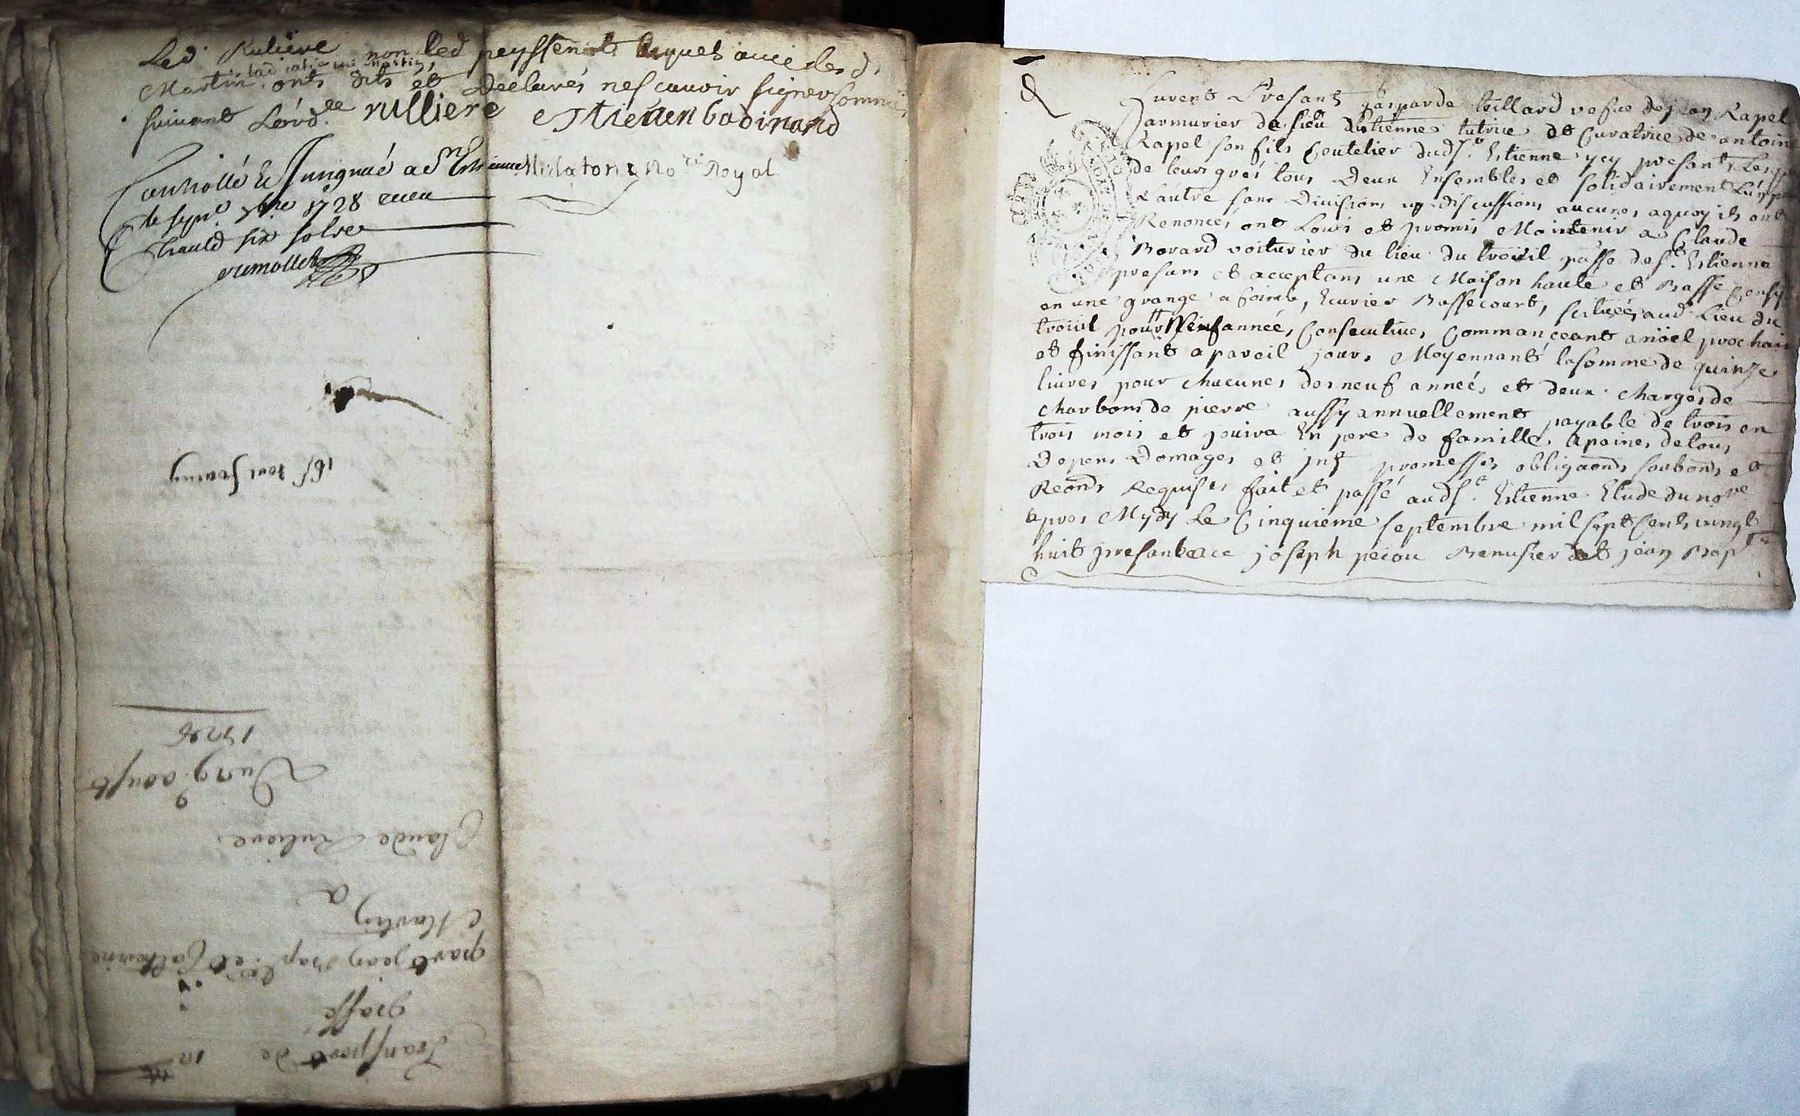 Led. Rulliere non led peyssenet lequel avec lesd.
Martin, ont dits et declarés ne scavoir signer sommés
suivant L'ord.ce rulliere estienne badinand
Controllé et Insignué a St Estienne Mulaton No.re Royal
le sept.e 7bre 1728 receu
Claude six solz
16s tout franq
1728
Du 9 aoust
Claude Ruliere
a
Martin
par jean Bap.te et Catherine
greffe
Transport de 10
furent Presants Gasparde teillard vefve de jean Rapel
armurier de St Estienne tutrice et Curatrice de antoine
Rapel son fils Coutelier dud. St. Estienne, ycy presant, Les
de leurs grés tous Deux Ensembles et solidairement L'un pour
L'autre sans Division ny discussions aucunes aquoy ils ont
Renoncé, ont Loüés et promis Maintenir a Claude
Berard voiturier du lieu du treuil passé de St. Estienne
presant et acceptant une Maison haute et Basse
en une grange a foin, Ecurier Bassecourt, scituées aud. Lieu du
treüil pour Neuf année, Consecutives, Commanceant a noël prochain
et finissant a pareil jours, Moyennant la somme de quinze
livres pour chacunes des neuf année, et deux charges de
charbons de pierre aussy annuellement payable de trois en
trois mois et jouira En pere de famille, a peines de tous
Depens Domages et int. promesses obligaons soubons et
Reons Requises fait et passé aud. St. Estienne Etude du no.re
apres Mydy Le Cinquieme septembre mil sept Cents vingt
huit presants joseph peiou Menusier et jean Bap.te